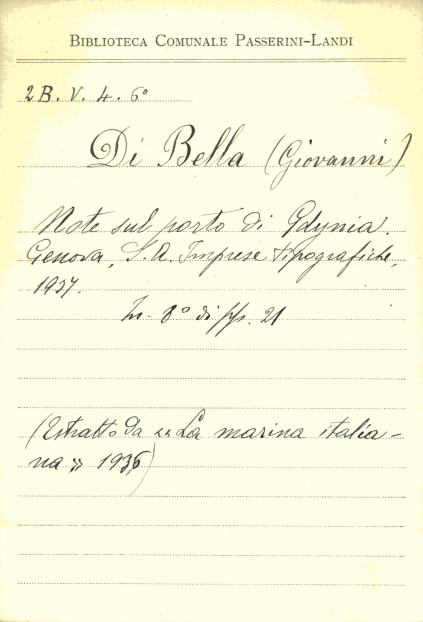 BIBLIOTECA COMUNALE PASSERINI-LANDI
2 B. V. 4. 6°
Di Bella (Giovanni)
Note sul porto di Gdynia.
Genova, S. A. Imprese tipografiche,
1937.
In-8° di pp. 21
(Estratto da «La marina italia-
na» 1936)